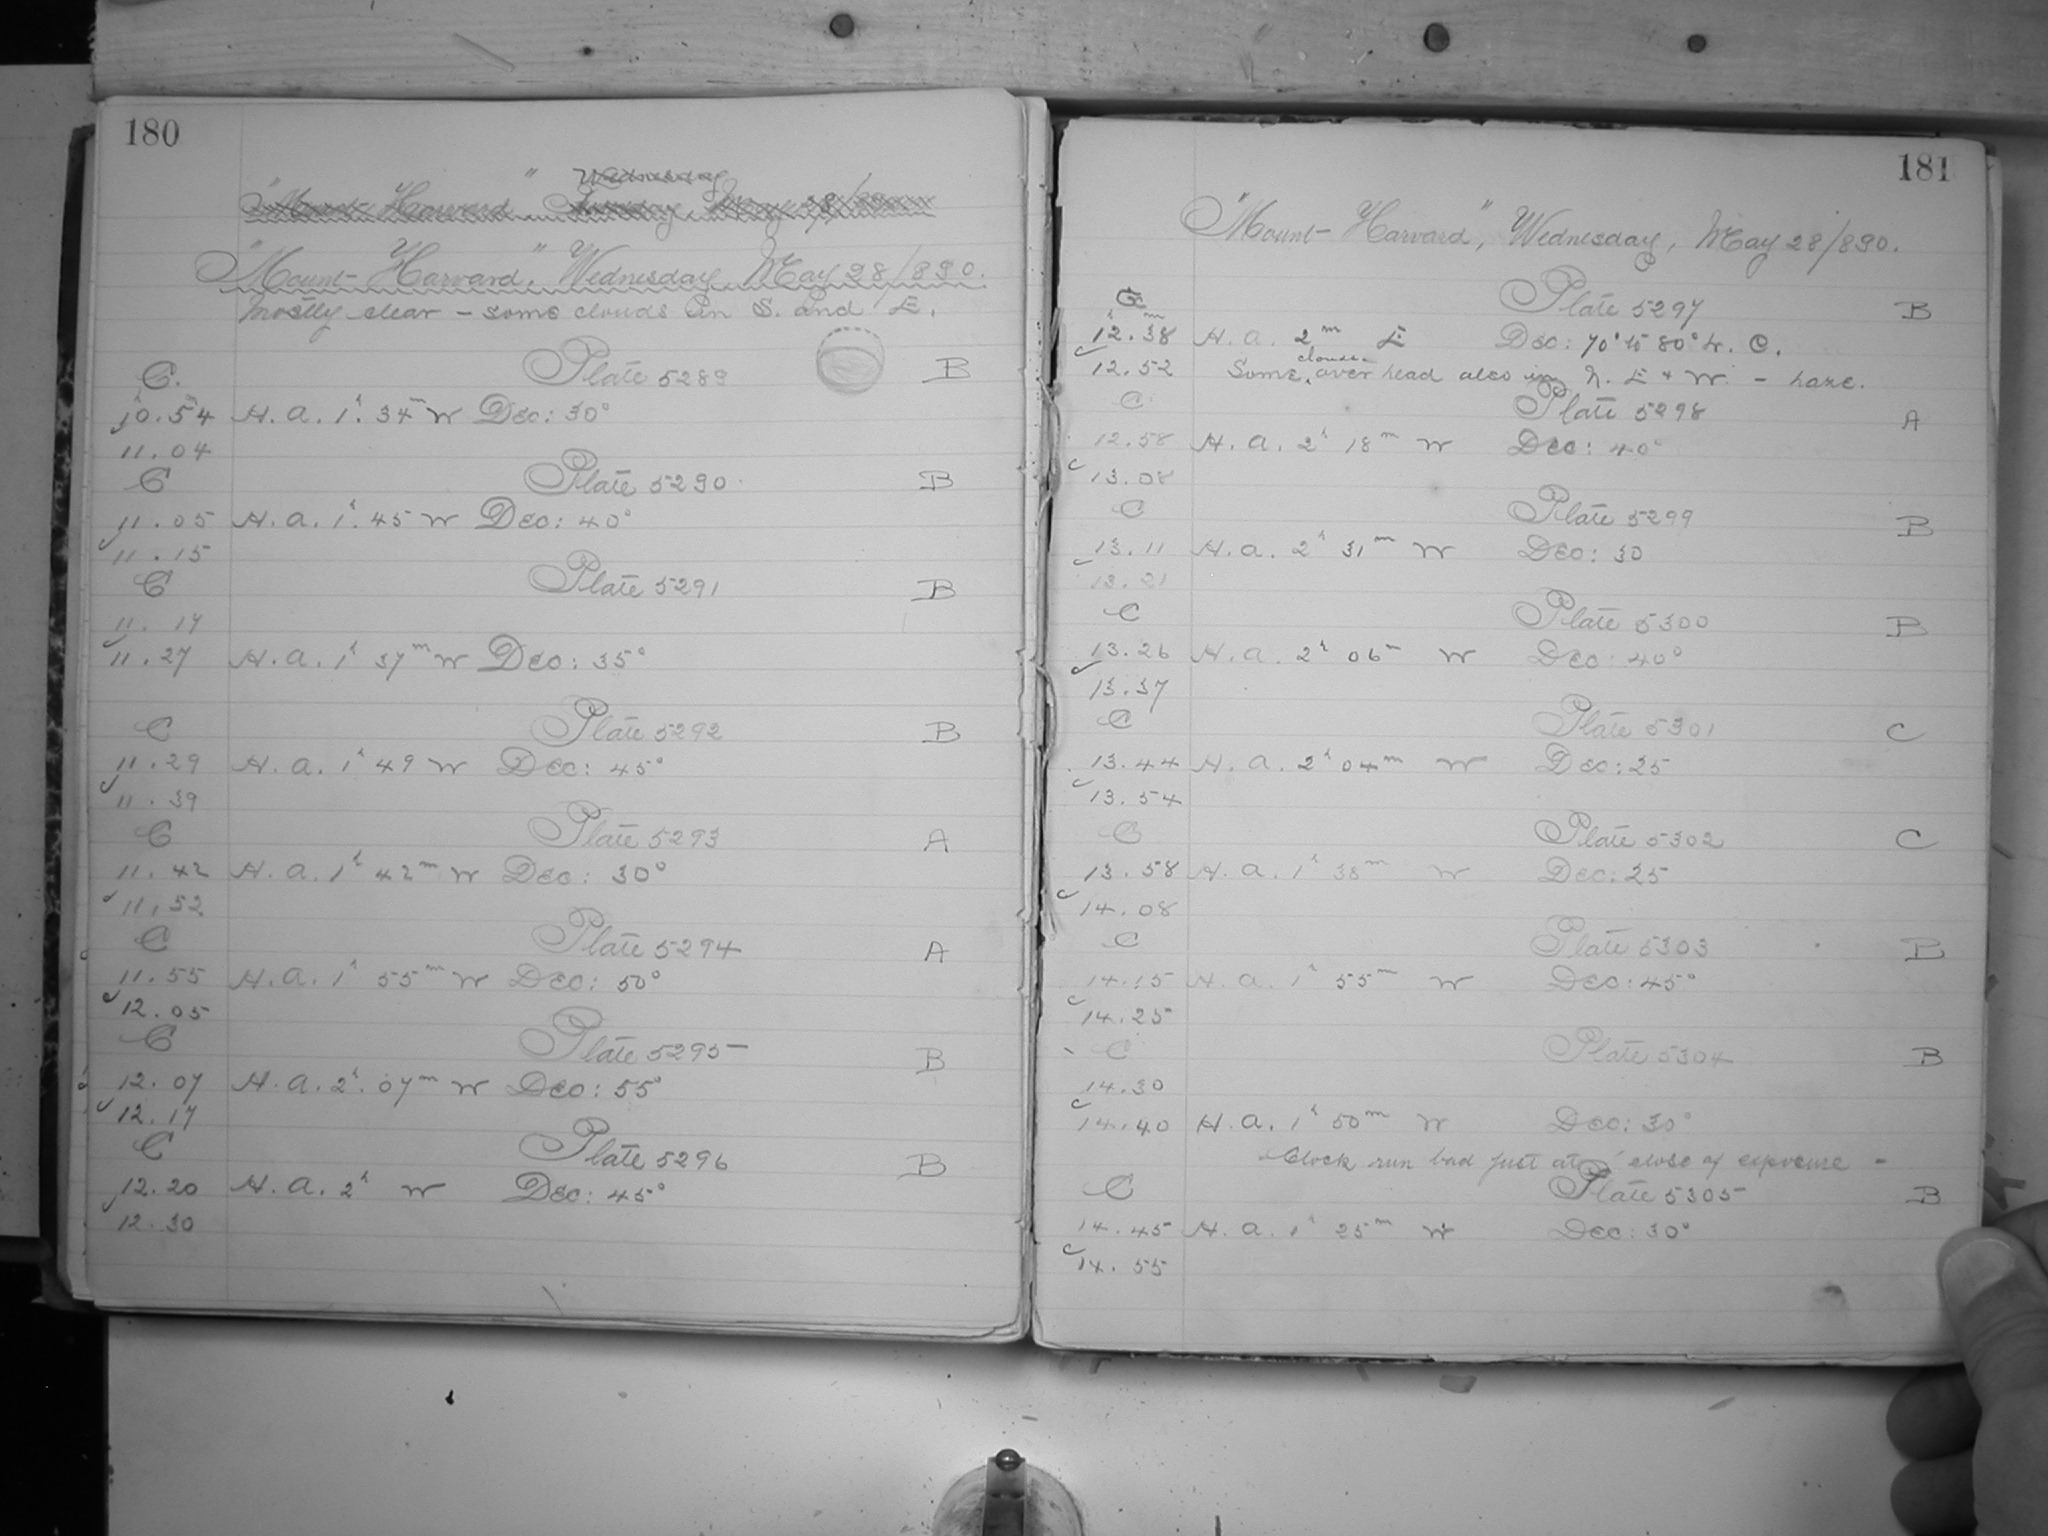 180
Wednesday
"Mount Harvard", Sunday, May 28/890
"Mount Harvard," Wednesday, May 28/890.
Mostly clear - some clouds in S. and E.
C. Plate 5289 B
10h.54m H.a. 1h. 34m W Dec: 30°
11.04
C Plate 5290 B
11.05 H.a. 1h. 45 W Dec: 40°
11.15
C Plate 5291 B
11.17
11.27 H.a. 1h 37m W Dec: 35°
C Plate 5292 B
11.29 H.a. 1h 49 W Dec: 45°
11.39
C Plate 5293 A
11.42 H.a. 1h 42m W Dec: 30°
11.52
C Plate 5294 A
11.55 H.a. 1h 55m W Dec: 50°
12.05
C Plate 5295 B
12.07 H.a. 2h. 07m W Dec: 55°
12.17
C Plate 5296 B
12.20 H.a. 2h W Dec: 45°
12.30
181
"Mount Harvard", Wednesday, May 28/890.
C Plate 5297 B
12h.38m H.a. 2m E Dec: 70° to 80° W. C.
12.52 Some clouds over head also in N. E & W. - haze.
C Plate 5298 A
12.58 H.a. 2h 18m W Dec: 40°
13.08
C Plate 5299 B
13.11 H.a. 2h 31m W Dec: 30
13.21
C Plate 5300 B
13.26 H.a. 2h 06m W Dec: 40°
13.37
C Plate 5301 C
13.44 H.a. 2h 04m W Dec: 25
13.54
C Plate 5302 C
13.58 H.a. 1h 38m W Dec: 25
14.08
C Plate 5303 B
14.15 H.a. 1h 55m W Dec: 45°
14.25
C Plate 5304 B
14.30
14.40 H.a. 1h 50m W Dec: 30°
Clock run bad just at close of exposure -
C Plate 5305 B
14.45 H.a. 1h 25m W Dec: 30°
14.55